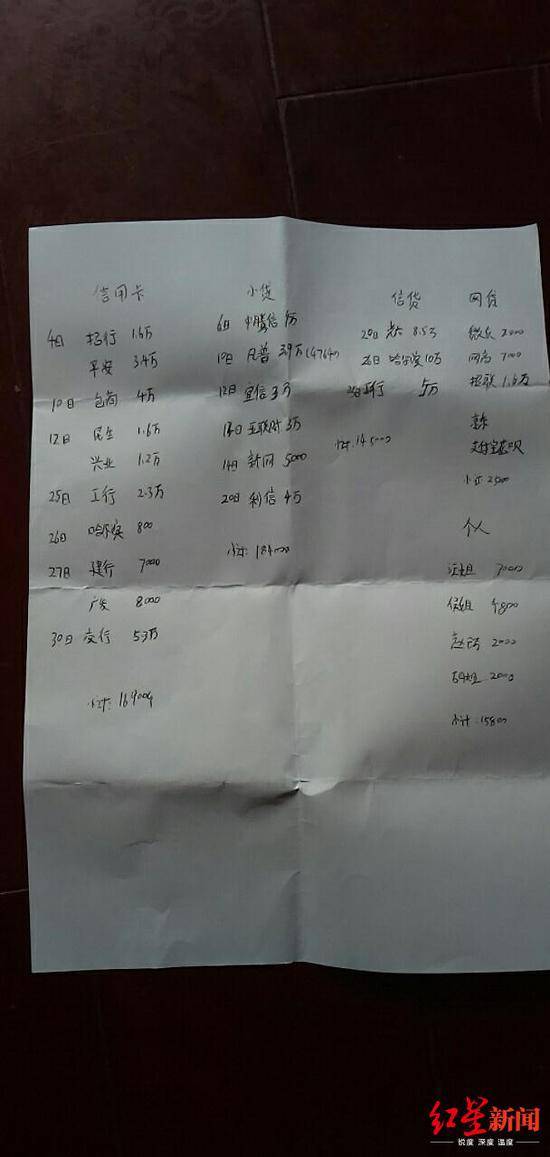 信用卡
4日 招行 1.6万
平安 3.4万
10日 包商 4万
12日 民生 1.6万
兴业 1.2万
25日 工行 2.3万
26日 哈尔滨 800
27日 建行 7000
广发 8000
30日 交行 5.3万
小计: 169000
小贷
6日 中腾信
10日 凡普 3.9万
12日 宜信 3万
14日 互联时 3万
14日 新网 5000
20日 利信 4万
小计: 184000
信贷
20日 光大 8.5万
26日 哈尔滨 10万
5万
小计: 145000
网贷
微众 2000
网商 7000
招联 1.6万
京东
支付宝 花呗
小计 25000
个人
汪姐 7000
侯姐 4800
2000
2000
小计 15800
红星新闻
锐度 深度 温度